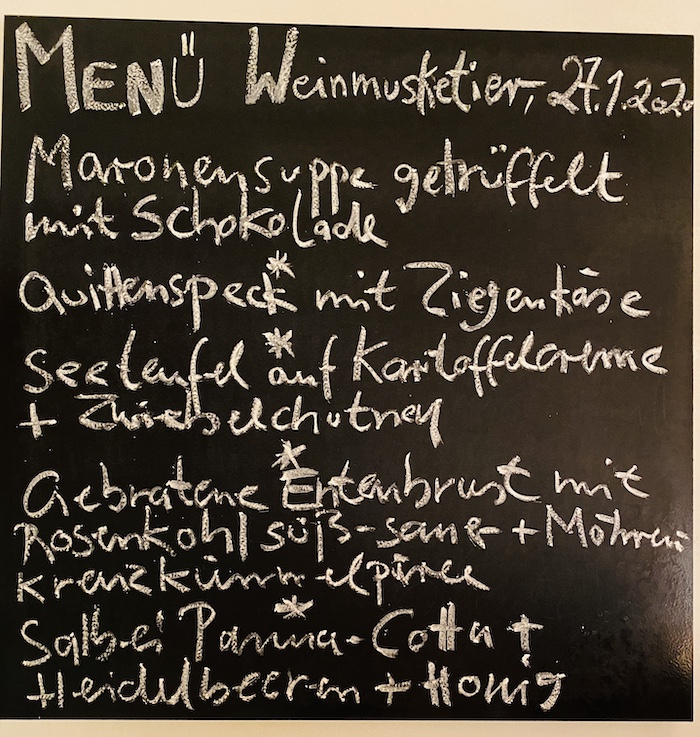 MENÜ Weinmusketier, 27.1.2020
Maronensuppe getrüffelt
mit Schokolade
*
Quittenspeck mit Ziegenkäse
*
Seeteufel auf Kartoffelcreme
+ Zwiebelchutney
*
Gebratene Entenbrust mit
Rosenkohl süß-sauer + Möhren
kreuzkümmelpüree
*
Salbei Panna-Cotta +
Heidelbeeren + Honig